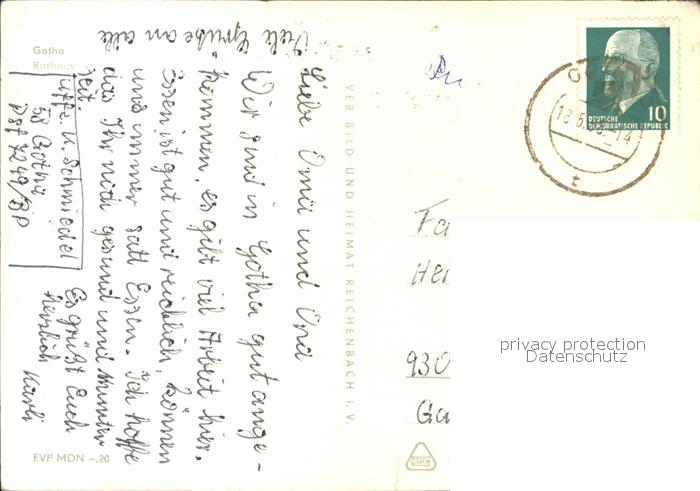 Gotha
Rathaus
Viele Grüße an alle
Liebe Oma und Opa
Wir sind in Gotha gut ange-
kommen, es gibt viel Arbeit hier.
Essen ist gut und reichlich, können
uns immer satt Essen. Ich hoffe
das Ihr noch gesund und Munter
seit.
Es grüßt Euch
Herzlich Karli
Uffz. u. Schmiedel
58 Gotha
Psf 7249/BP
EVP MDN –,20
VEB BILD UND HEIMAT REICHENBACH i. V.
10
DEUTSCHE
DEMOKRATISCHE REPUBLIK
Fa
Hei
930
Ga
privacy protection
Datenschutz